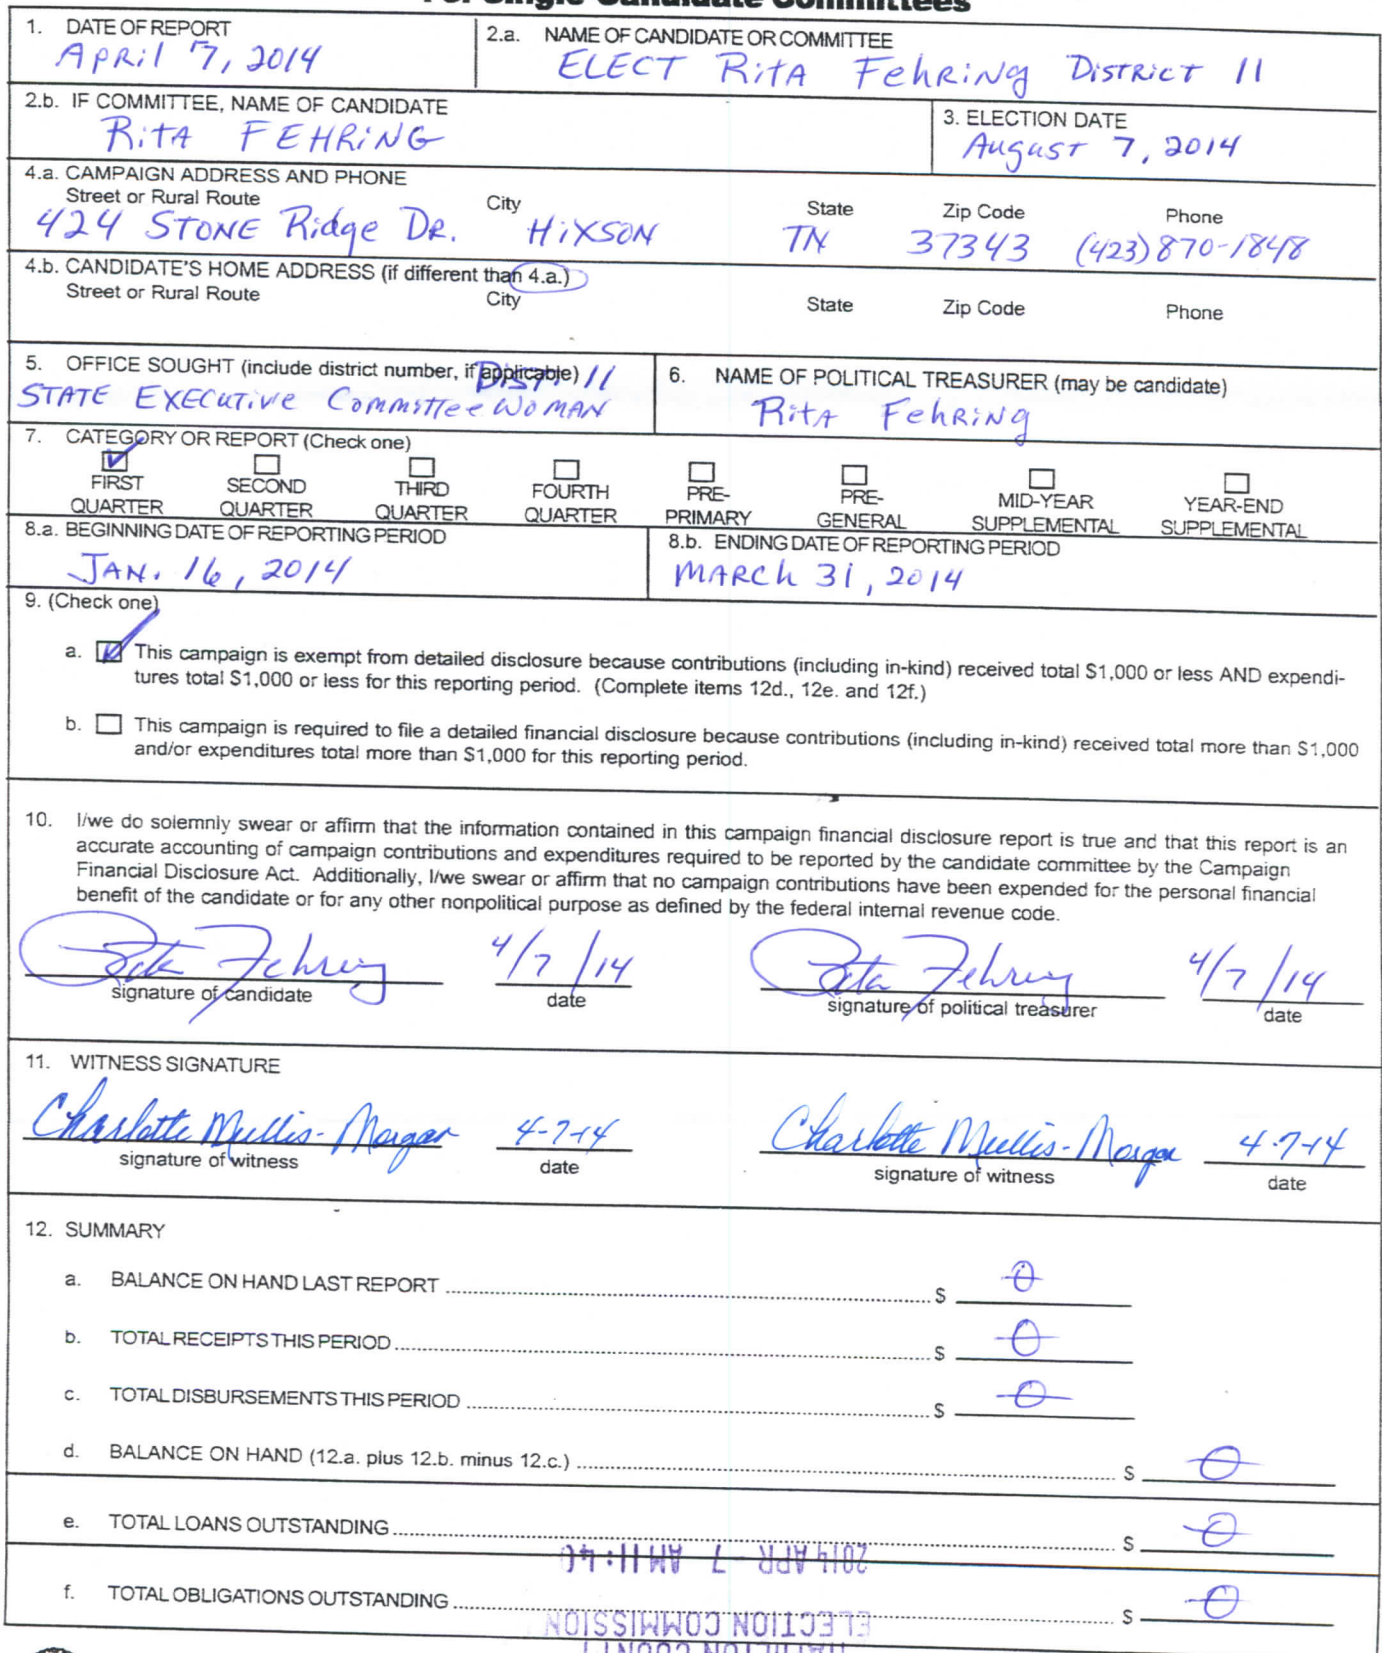 For Single-Candidate Committees
1. DATE OF REPORT
April 7, 2014
2.a. NAME OF CANDIDATE OR COMMITTEE
ELECT Rita Fehring District 11
2.b. IF COMMITTEE, NAME OF CANDIDATE
Rita FEHRING
3. ELECTION DATE
August 7, 2014
4.a. CAMPAIGN ADDRESS AND PHONE
Street or Rural Route City State Zip Code Phone
424 STONE Ridge DR. HIXSON TN 37343 (423) 870-1848
4.b. CANDIDATE'S HOME ADDRESS (if different than 4.a.)
Street or Rural Route City State Zip Code Phone
5. OFFICE SOUGHT (include district number, if applicable) Dist. 11
STATE EXECUTIVE Committee WOMAN
6. NAME OF POLITICAL TREASURER (may be candidate)
Rita Fehring
7. CATEGORY OR REPORT (Check one)
FIRST QUARTER
SECOND QUARTER
THIRD QUARTER
FOURTH QUARTER
PRE-PRIMARY
PRE-GENERAL
MID-YEAR SUPPLEMENTAL
YEAR-END SUPPLEMENTAL
8.a. BEGINNING DATE OF REPORTING PERIOD
JAN. 16, 2014
8.b. ENDING DATE OF REPORTING PERIOD
MARCH 31, 2014
9. (Check one)
a. This campaign is exempt from detailed disclosure because contributions (including in-kind) received total $1,000 or less AND expendi-
tures total $1,000 or less for this reporting period. (Complete items 12d., 12e. and 12f.)
b. This campaign is required to file a detailed financial disclosure because contributions (including in-kind) received total more than $1,000
and/or expenditures total more than $1,000 for this reporting period.
10. I/we do solemnly swear or affirm that the information contained in this campaign financial disclosure report is true and that this report is an
accurate accounting of campaign contributions and expenditures required to be reported by the candidate committee by the Campaign
Financial Disclosure Act. Additionally, I/we swear or affirm that no campaign contributions have been expended for the personal financial
benefit of the candidate or for any other nonpolitical purpose as defined by the federal internal revenue code.
Rita Fehring 4/7/14 Rita Fehring 4/7/14
signature of candidate date signature of political treasurer date
11. WITNESS SIGNATURE
Charlotte Mullis-Morgan 4-7-14 Charlotte Mullis-Morgan 4-7-14
signature of witness date signature of witness date
12. SUMMARY
a. BALANCE ON HAND LAST REPORT $ 0
b. TOTAL RECEIPTS THIS PERIOD $ 0
c. TOTAL DISBURSEMENTS THIS PERIOD $ 0
d. BALANCE ON HAND (12.a. plus 12.b. minus 12.c.) $ 0
e. TOTAL LOANS OUTSTANDING $ 0
2014 APR -7 AM 11:40
f. TOTAL OBLIGATIONS OUTSTANDING $ 0
ELECTION COMMISSION
HAMILTON COUNTY